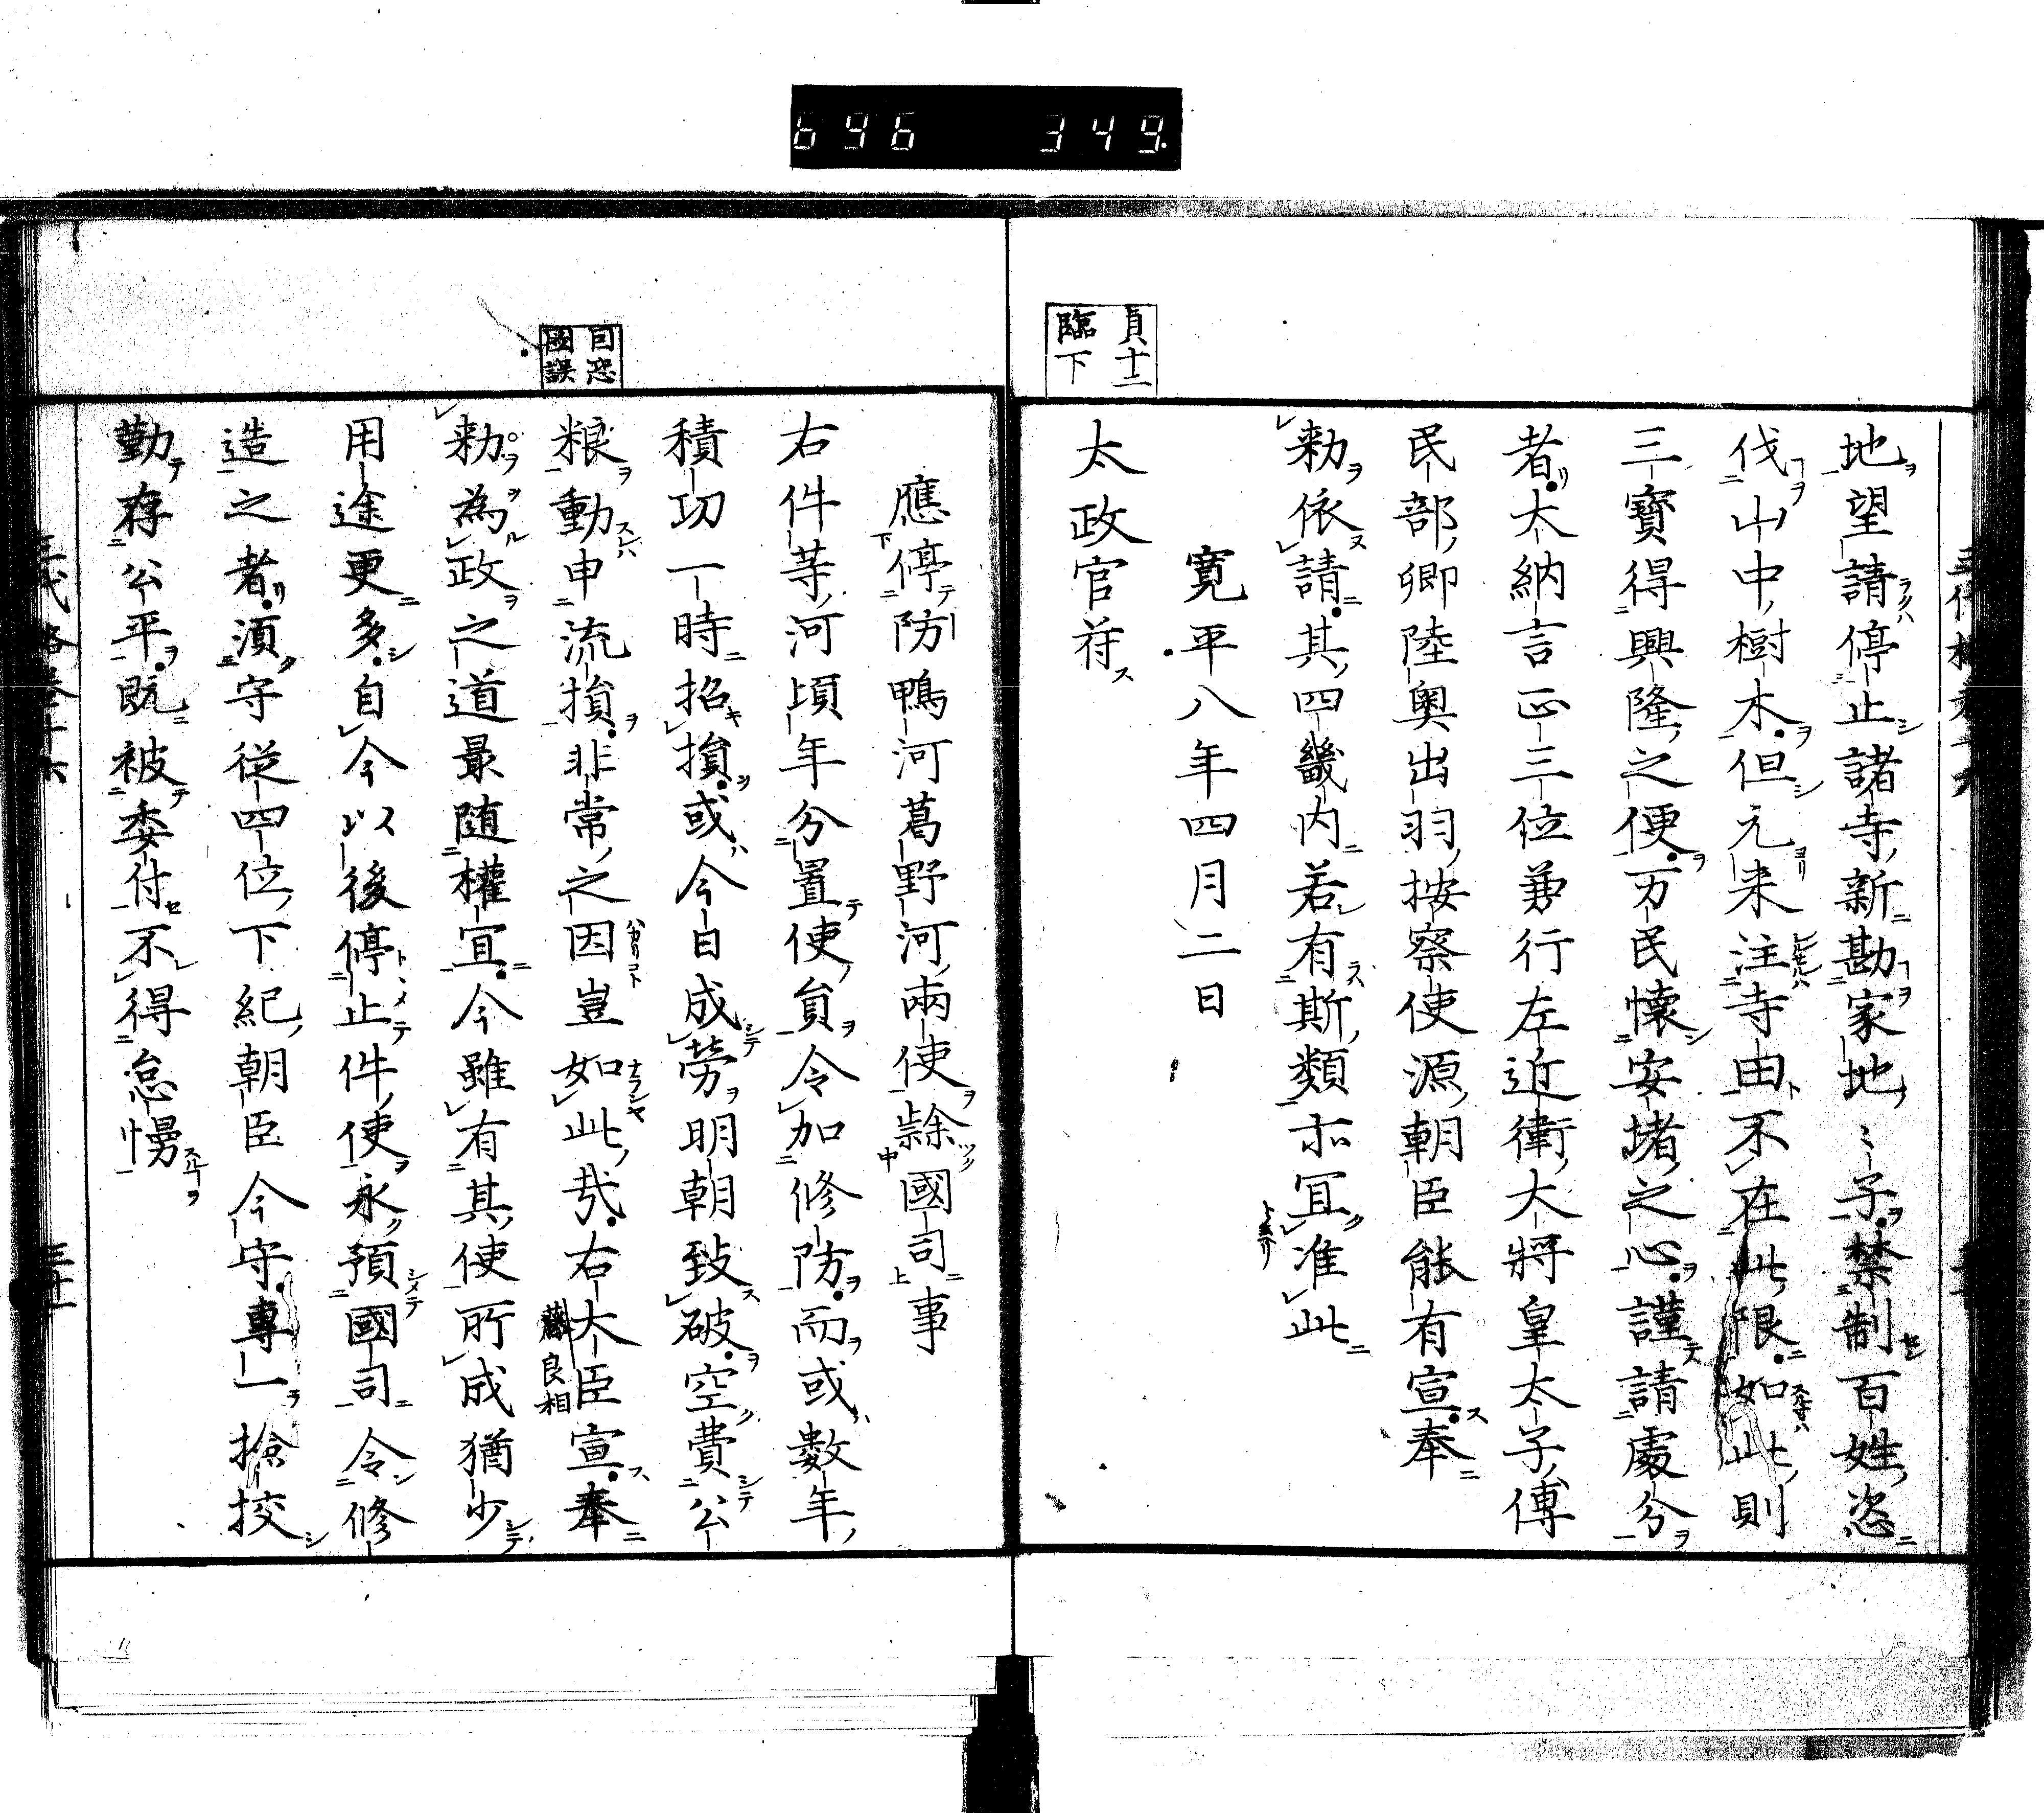 696 349
貞十二
臨下
地望請停止諸寺新勘家地〻子禁制百姓恣
伐山中樹木但元来注寺田不在此限如此則
三寳得興隆之便万民懐安堵之心謹請處分
者大納言正三位兼行左近衛大將皇太子傅
民部卿陸奥出羽按察使源朝臣能有宣奉
勅依請其四畿内若有斯類亦冝准此
寛平八年四月二日
太政官符
目恐
國誤
應停防鴨河葛野河兩使隷國司事
右件等河頃年分置使負令加修防而或數年
積功一時招損或今日成勞明朝致破空費公
粮動申流損非常之因豈如此㢤右大臣宣奉
藤良相
勅為政之道最随權冝今雖有其使所成猶少
用途更多自今以後停止件使永預國司令修
造之者湏守従四位下紀朝臣今守專一撿挍
勤存公平既被委付不得怠慢
三代格卷十六
三十一